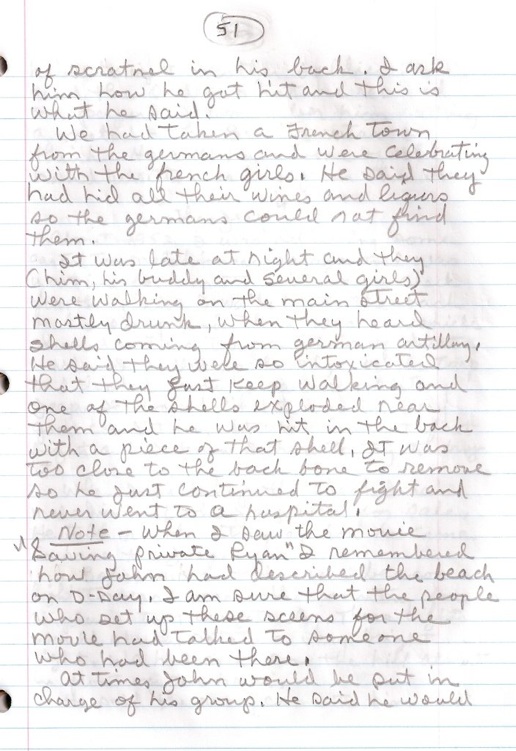 51
of scratnel in his back. I ask
him how he got hit and this is
what he said.
We had taken a French town
from the germans and were celebrating
with the french girls. He said they
had hid all their wines and liquors
so the germans could not find
them.
It was late at night and they
(him, his buddy and several girls)
were walking on the main street
mostly drunk, when they heard
shells coming from german artillary.
He said they were so intoxicated
that they just keep walking and
one of the shells exploded near
them and he was hit in the back
with a piece of that shell. It was
too close to the back bone to remove
so he just continued to fight and
never went to a hospital.
Note - When I saw the movie
"Saving private Ryan" I remembered
how John had described the beach
on D-Day. I am sure that the people
who set up these sceens for the
movie had talked to someone
who had been there.
At times John would be put in
charge of his group. He said he would